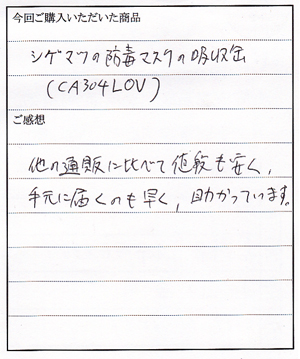 今回ご購入いただいた商品
シゲマツの防毒マスクの吸収缶
(CA304LOV)
ご感想
他の通販に比べて値段も安く,
手元に届くのも早く,助かっています。